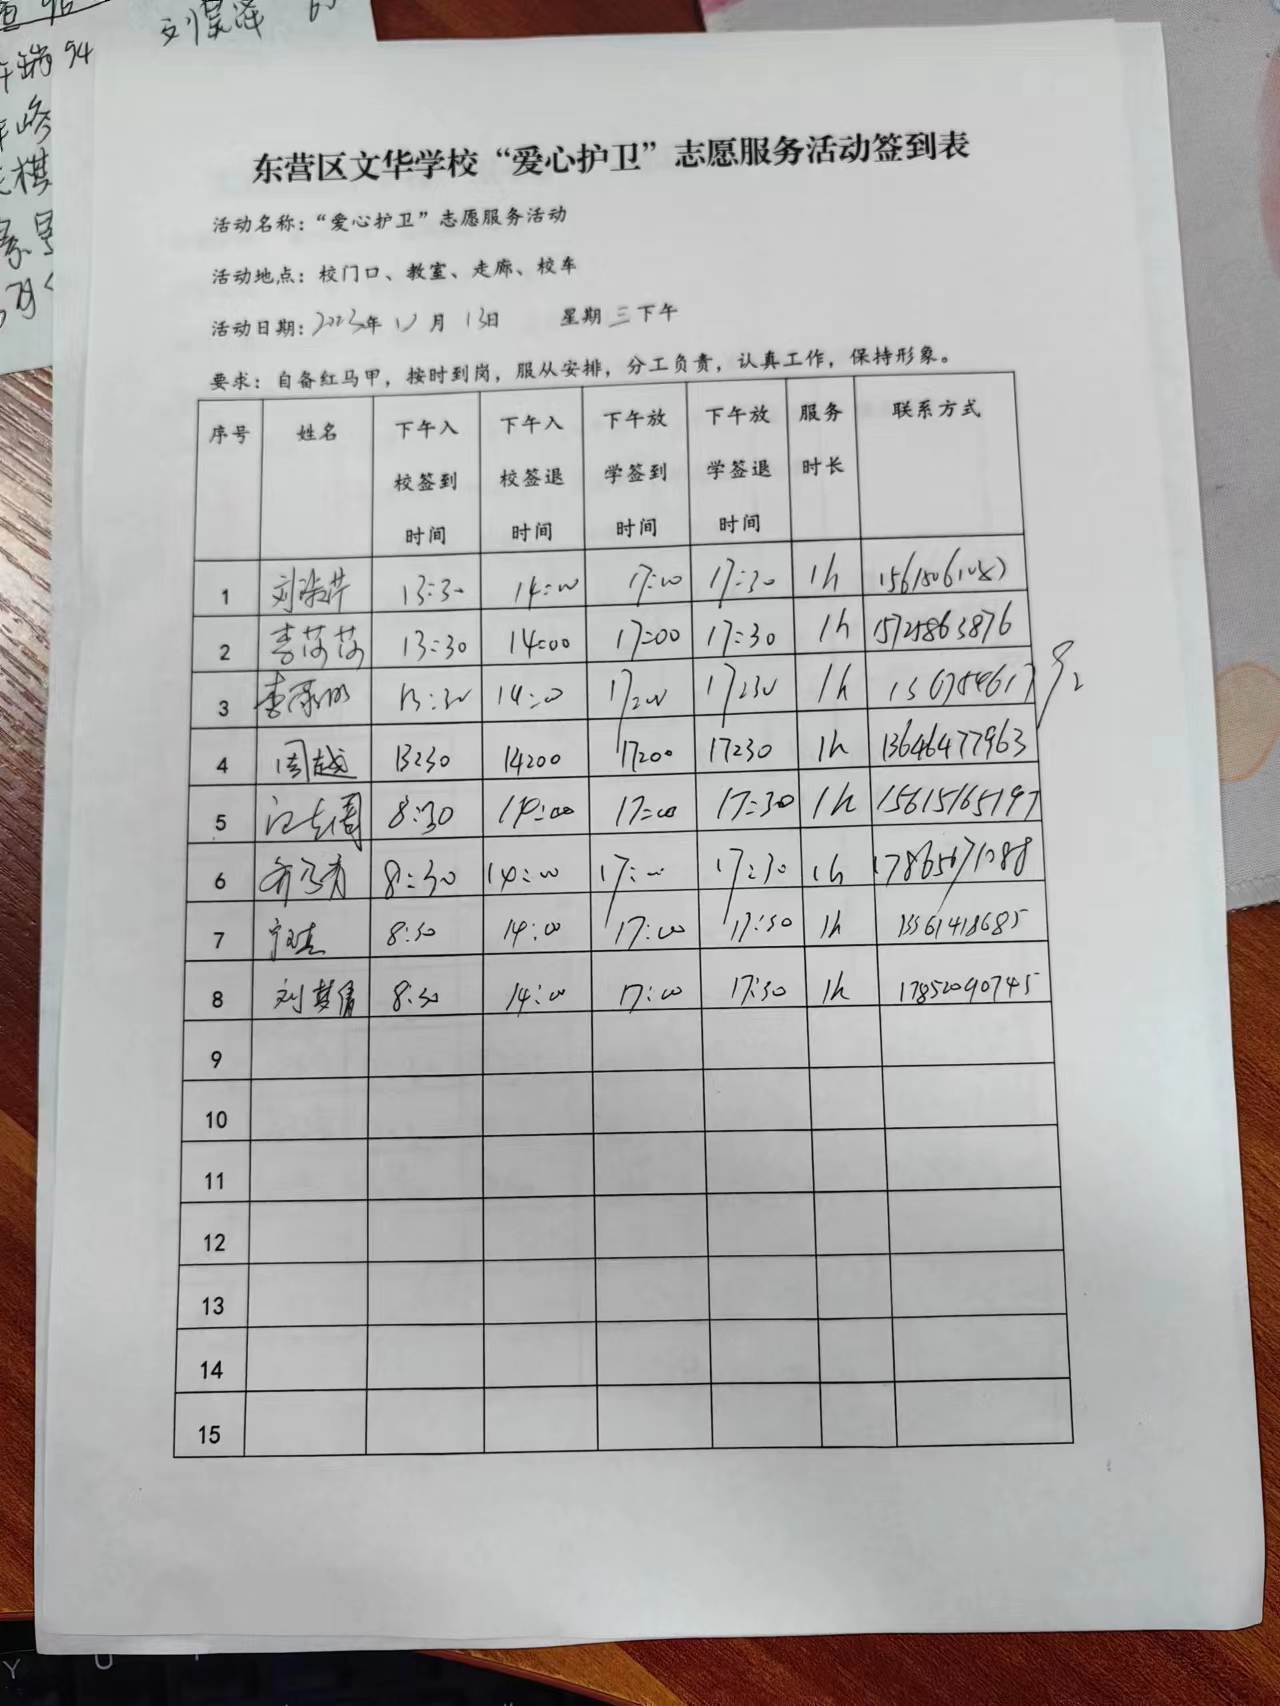 刘昊泽
94
东营区文华学校“爱心护卫”志愿服务活动签到表
活动名称：“爱心护卫”志愿服务活动
活动地点：校门口、教室、走廊、校车
活动日期：2023年12月13日 星期三下午
要求：自备红马甲，按时到岗，服从安排，分工负责，认真工作，保持形象。
序号 姓名 下午入校签到时间 下午入校签退时间 下午放学签到时间 下午放学签退时间 服务时长 联系方式
1 13:30 14:00 17:00 17:30 1h
2 李莎莎 13:30 14:00 17:00 17:30 1h 15725863876
3 13:30 14:00 17:00 17:30 1h
4 周越 13:30 14:00 17:00 17:30 1h 13646477963
5 8:30 14:00 17:00 17:30 1h 15615165197
6 8:30 14:00 17:00 17:30 1h 17865671088
7 8:30 14:00 17:00 17:30 1h 13561418685
8 刘梦倩 8:30 14:00 17:00 17:30 1h 17852090745
9
10
11
12
13
14
15
Y U